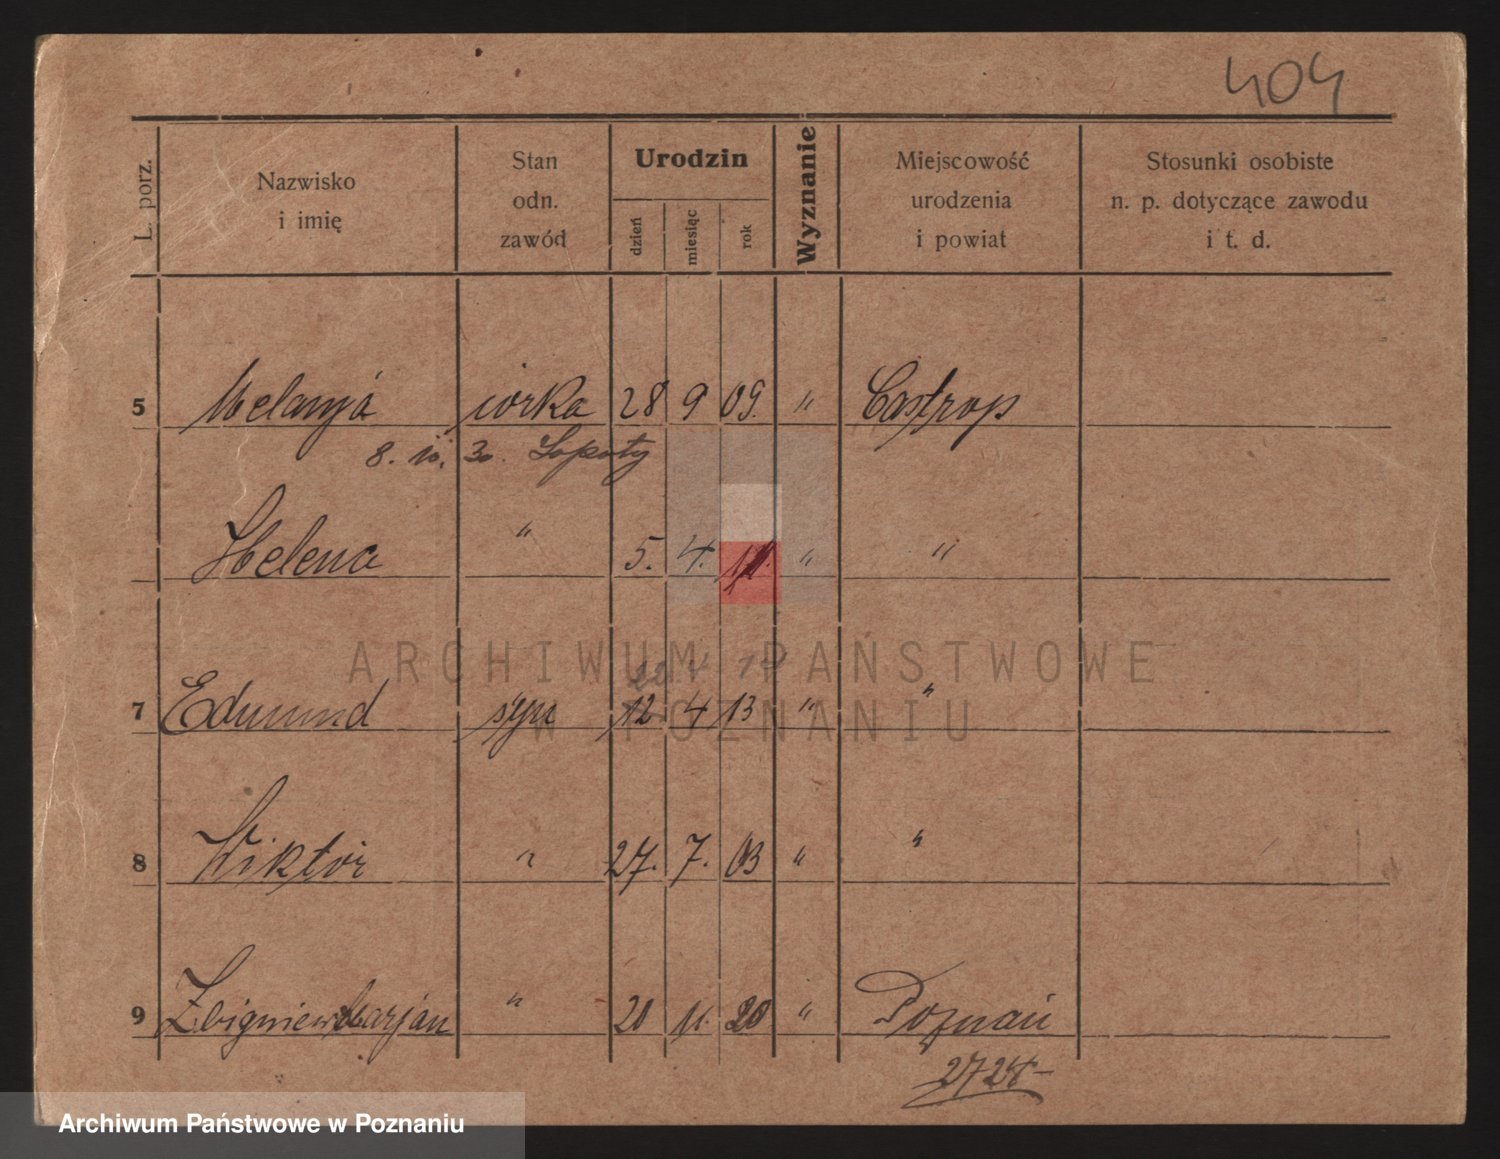 404
L. porz. Nazwisko i imię Stan odn. zawód Urodzin dzień miesiąc rok Wyznanie Miejscowość urodzenia i powiat Stosunki osobiste n. p. dotyczące zawodu i t. d.
5 Melanja córka 28 9 09. " Castrop
8. 10. 30. Sopoty
Helena " 5. 4. "  "
ARCHIWUM PAŃSTWOWE
W POZNANIU
7 Edmund syn 12 4 13 " "
8 Wiktor " 27. 7. 03 " "
9 Zbigniew Marjan " 20 11. 20 " Poznań
2724
Archiwum Państwowe w Poznaniu